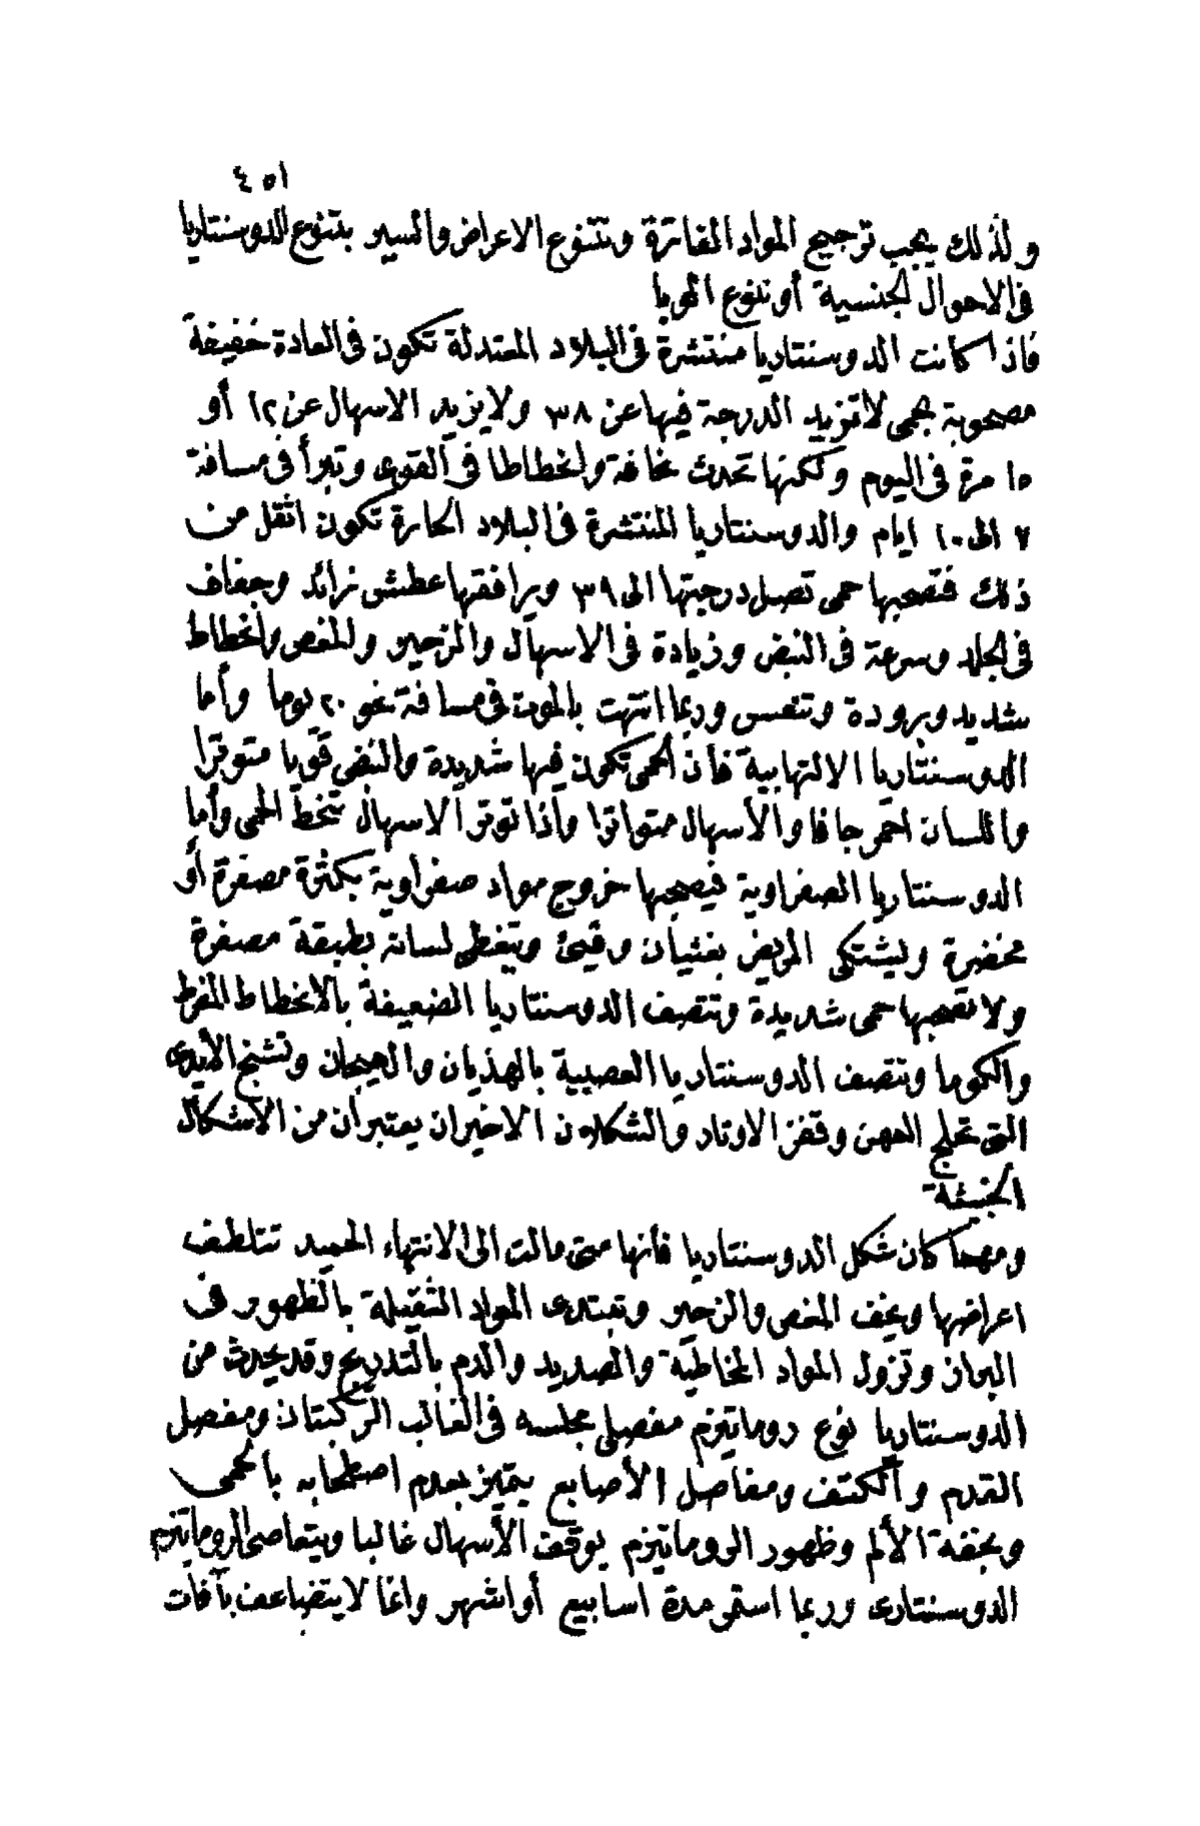 ٤٥١
ولذلك يجب ترجيح المواد الفاترة وتتنوع الاعراض والسير بتنوع الدوسنتاريا
فى الاحوال الجنسية أو تنوع الوبا
فاذا كانت الدوسنتاريا منتشرة فى البلاد المعتدلة تكون فى العادة خفيفة
مصحوبة بحمى لا تزيد الدرجة فيها عن ٣٨ ولا يزيد الاسهال عن ١٢ أو
١٥ مرة فى اليوم ولكنها تحدث نحافة وانحطاطا فى القوى وتبرأ فى مسافة
٧ الى ١٠ ايام والدوسنتاريا المنتشرة فى البلاد الحارة تكون اثقل من
ذلك فتصحبها حمى تصل درجتها الى ٣٩ ويرافقها عطش زائد وجفاف
فى الجلد وسرعة فى النبض وزيادة فى الاسهال والزحير والمغص وانحطاط
شديد وبرودة وتنفس وربما انتهت بالموت فى مسافة نحو ٢٠ يوما وأما
الدوسنتاريا الالتهابية فأن الحمى تكون فيها شديدة والنبض قويا متوترا
واللسان احمر جافا والأسهال متواترا واذا توتر الاسهال تنحط الحمى وأما
الدوسنتاريا الصفراوية فيصحبها خروج مواد صفراوية بكثرة مصفرة أو
مخضرة ويشتكى المريض بغثيان وقيئ ويتغطى لسانه بطبقة مصفرة
ولا تصحبها حمى شديدة وتتصف الدوسنتاريا الضعيفة بالانحطاط المفرط
والكوما وتتصف الدوسنتاريا العصبية بالهذيان والهيجان وتشنج الأيدى
التى تحلج العهن وقفز الاوتار والشكلان الاخيران يعتبران من الاشكال
الخبيثة
ومهما كان شكل الدوسنتاريا فأنها متى مالت الى الانتهاء الحميد تتلطف
اعراضها ويخف المغص والزحير وتبتدى المواد الثقيلة بالظهور فى
البراز وتزول المواد المخاطية والصديد والدم بالتدريج وقد يحدث من
الدوسنتاريا نوع روماتيزم مفصلى مجلسه فى الغالب الركبتان ومفصل
القدم والكتف ومفاصل الأصابع يتميز بعدم اصطحابه بالحمى
وبخفة الألم وظهور الروماتيزم يوقف الأسهال غالبا ويتعاصى الروماتيزم
الدوسنتارى وربما استمر مدة اسابيع أو اشهر وانما لا يتضاعف بآفات